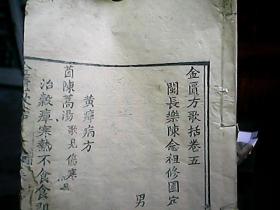 金匱方歌括卷五
閩長樂陳念祖修園
男
黄癉病方
茵陳蒿湯歌見傷寒
治穀癉寒熱不食食即